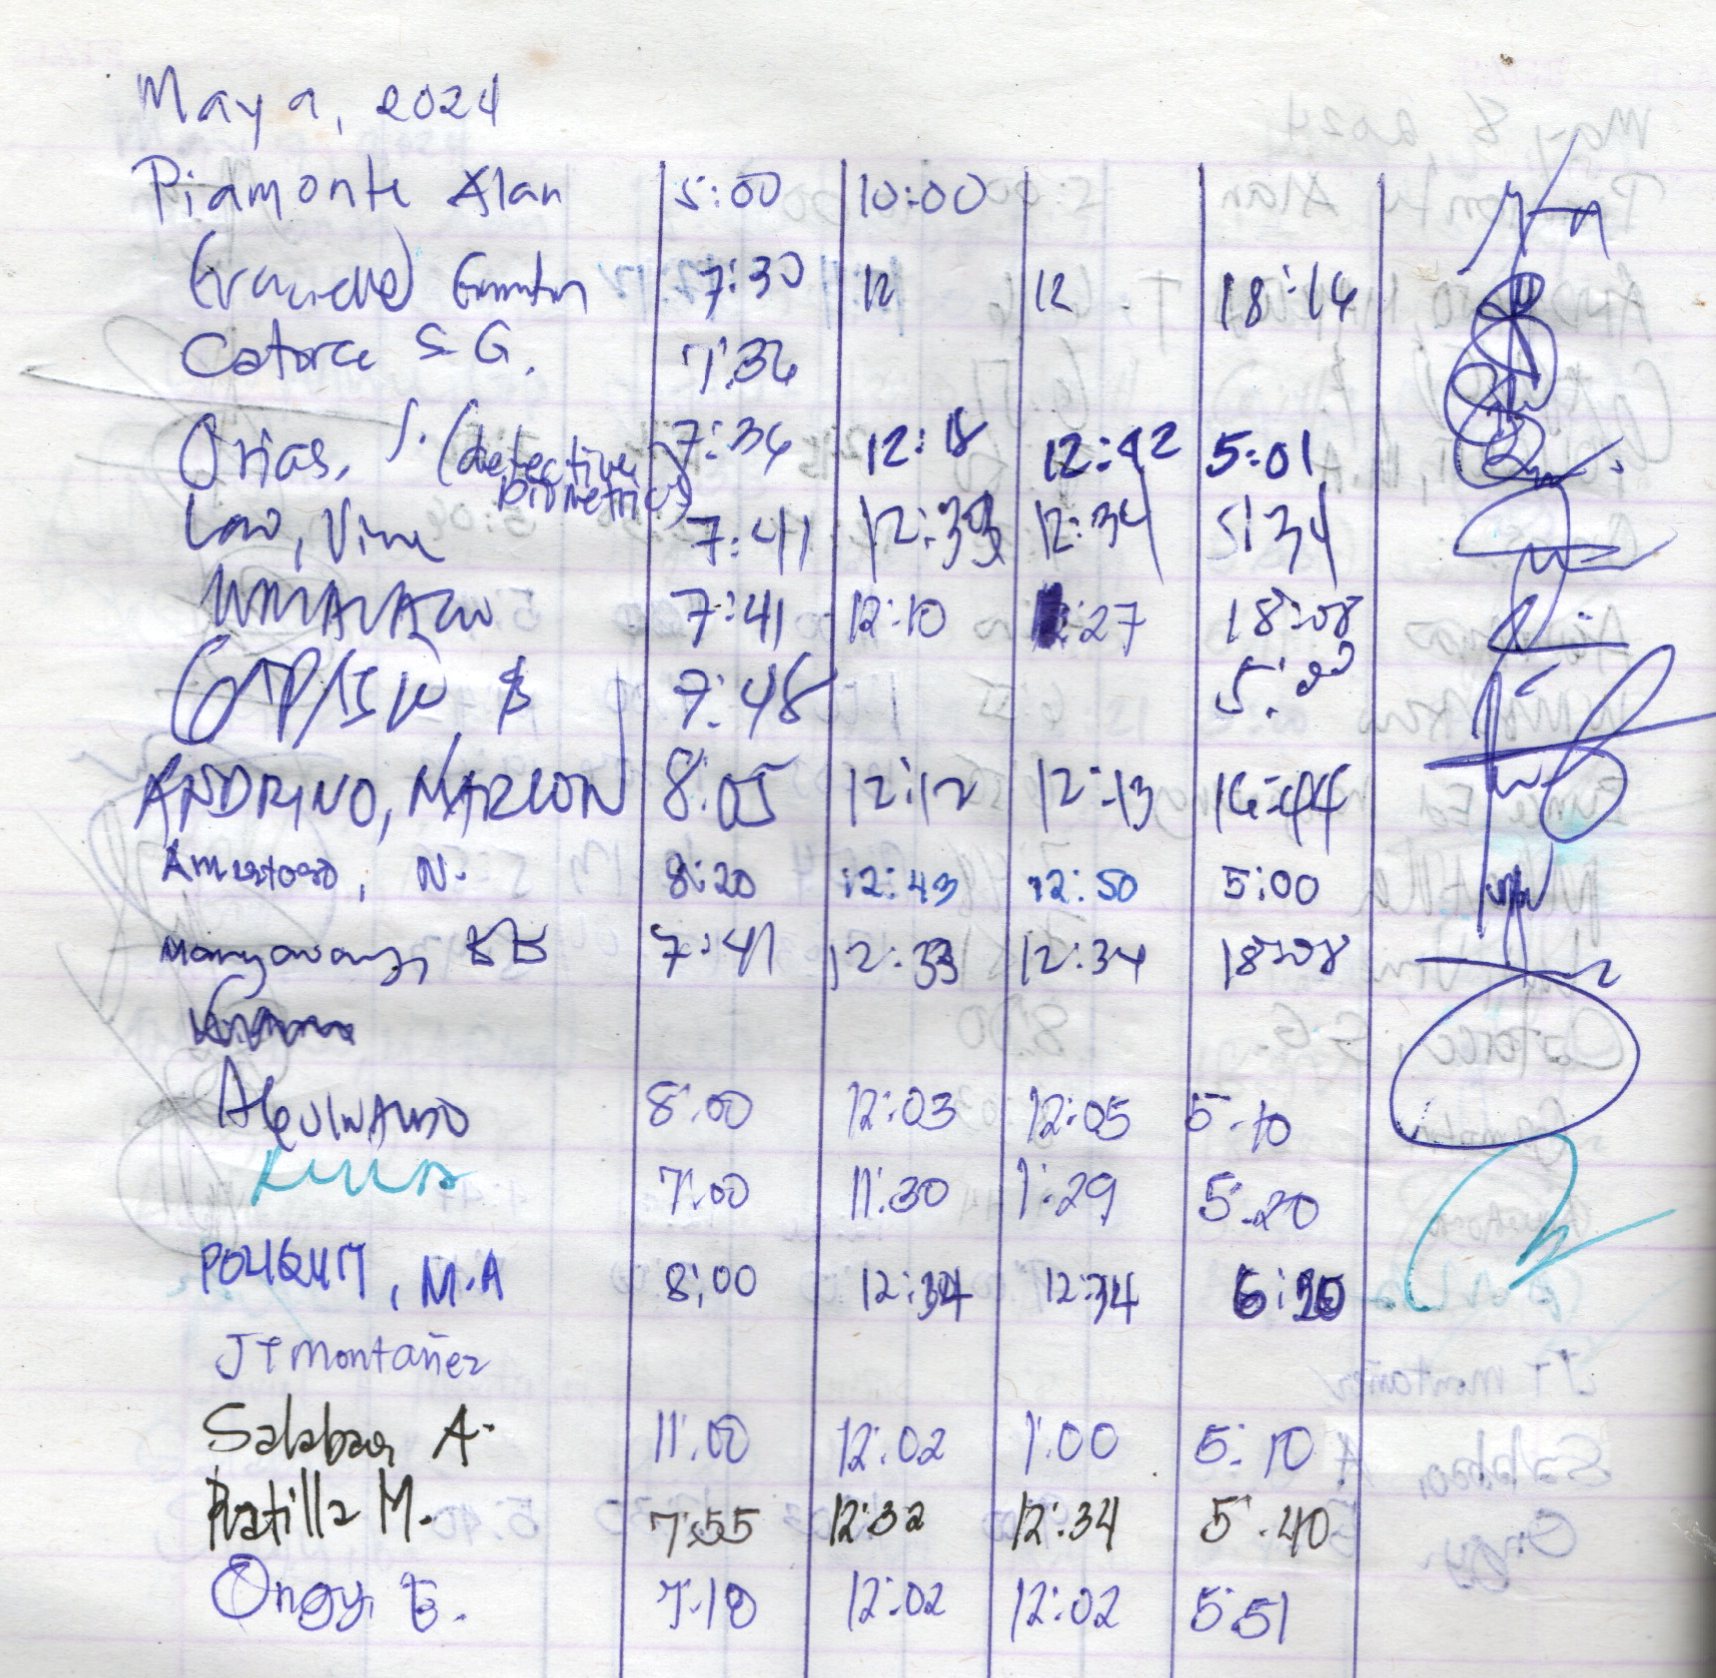 May 9, 2024
Piamonte Alan 5:00 10:00
7:30 12 12 18:14
Catorce S G. 7:36
Orias, J. (detective biometrics) 7:36 12:18 12:42 5:01
Lao, Vina 7:41 12:33 12:34 5:34
7:41 12:10 :27 18:08
7:48
ANDRINO, MARLON 8:05 12:12 12:13 16:44
Amestoso, N. 8:20 12:43 12:50 5:00
7:41 12:33 12:34 18:08
Aguinaldo 8:00 12:03 12:05 5:10
7:00 11:30 1:29 5:20
POLIQUIT, M.A 8:00 12:34 12:34
JT Montañez
Salabao, A. 11:00 12:02 1:00 5:10
Ratilla M. 7:55 12:32 12:34 5:40
Ongy, E. 7:10 12:02 12:02 5:51